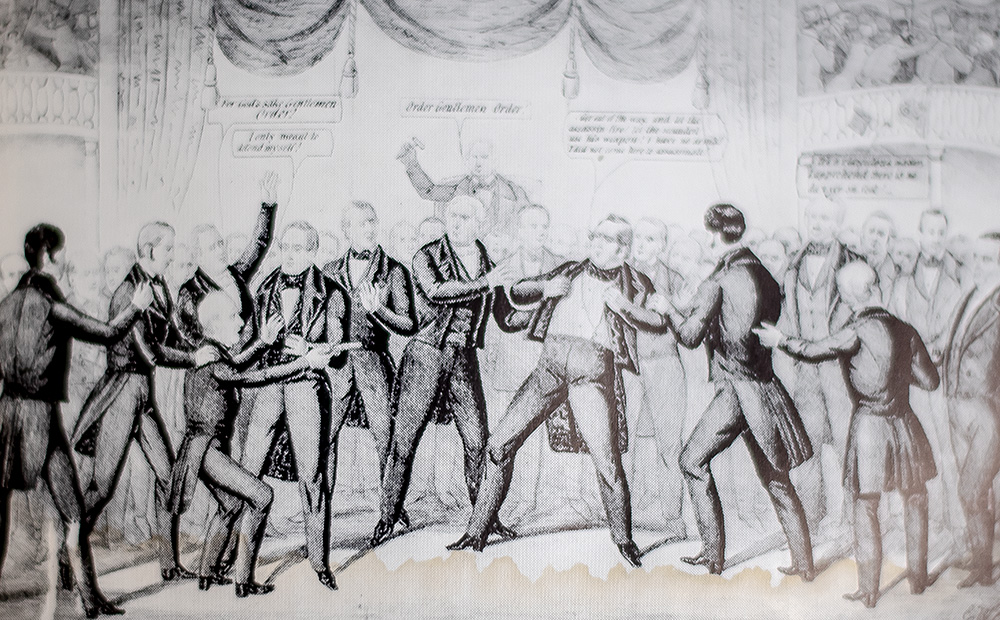 For God's sake Gentlemen
Order!
I only meant to
defend myself!
Order Gentlemen Order
Get out of the way, and let the
assassin fire! let the scoundrel
use his weapon! I have no arm's!
I did not come here to assassinate!
I apprehended there is no
danger